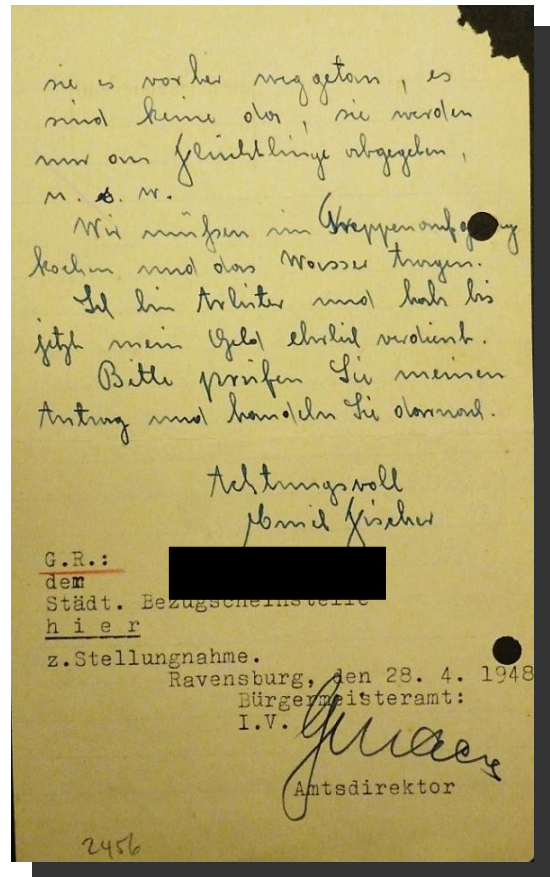 sie es vorher weggetan, es
sind keine da, sie werden
nur an Flüchtlinge abgegeben,
u. s. w.
Wir müßen im Treppenaufgang
kochen und das Wasser tragen.
Ich bin Arbeiter und hab bis
jetzt mein Geld ehrlich verdient.
Bitte prüfen Sie meinen
Antrag und handeln Sie darnach.
Achtungsvoll
Emil Fischer
G.R.:
der
Städt. Bezugscheinstelle
h i e r
z.Stellungnahme.
Ravensburg, den 28. 4. 1948
Bürgermeisteramt:
I.V.
Amtsdirektor
2456